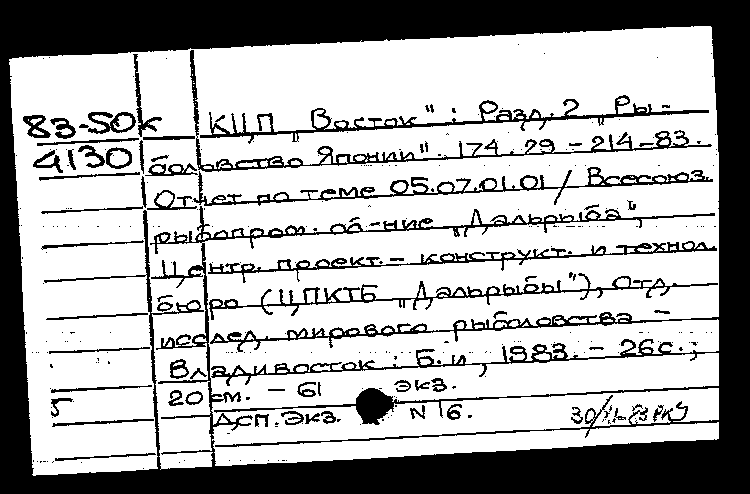 83-50к КЦП „Восток": Разд. 2 „Ры-
4130 боловство Японии". 174.29-214-83.
Отчет по теме 05.07.01.01 / Всесоюз.
рыбопром. об-ние „Дальрыба",
Центр. проект.- конструкт. и технол.
бюро (ЦПКТБ „Дальрыбы"), Отд.
исслед. мирового рыболовства -
Владивосток: Б.и, 1983. - 26с.;
20 см. - 61 экз.
5 Дсп. Экз. N 16.